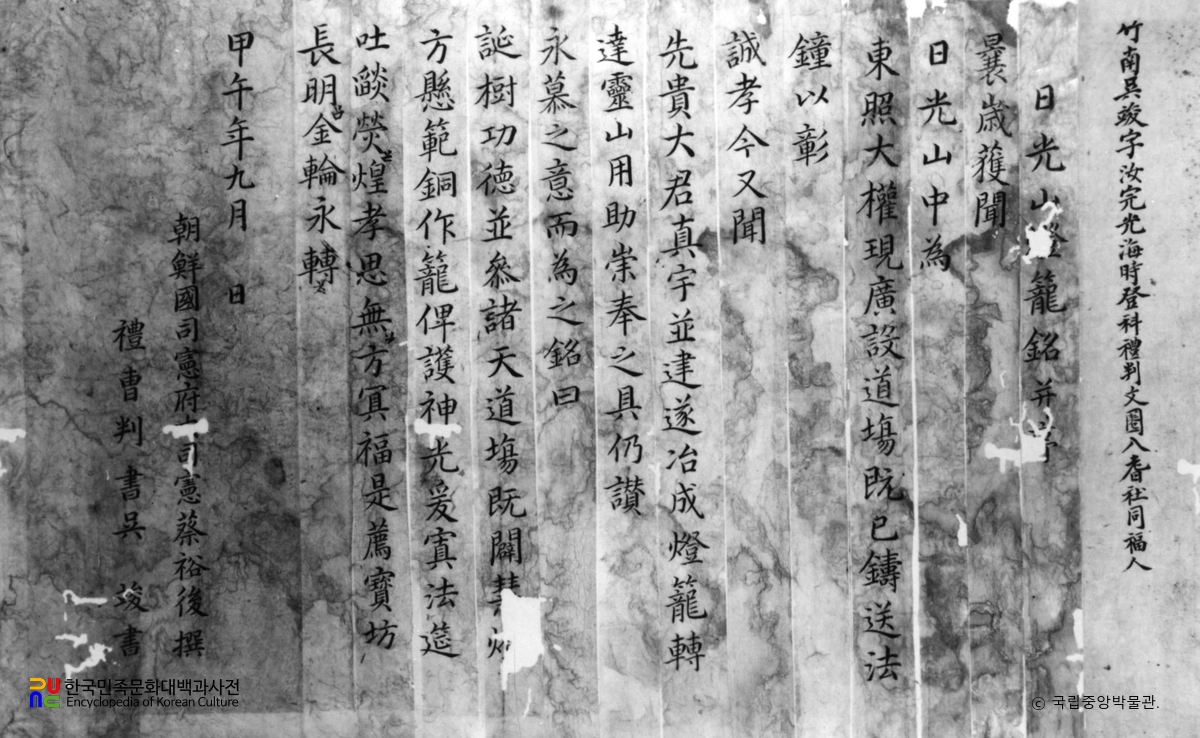 竹南吳竣字汝完光海時登科禮判文圈入耆社同福人
日光山燈籠銘并序
曩歲蒦聞
日光山中為
東照大權現廣設道場既已鑄送法
鐘以彰
誠孝今又聞
先貴大君真宇並建遂冶成燈籠轉
達靈山用助崇奉之具仍讃
永慕之意而為之銘曰
誕樹功德並叅諸天道場既闢慧
方懸範銅作籠俾護神光爰寘法筵
吐燄熒煌孝思無方冥福是薦寶坊
長明金輪永轉
甲午年九月 日
朝鮮國司憲府 司憲蔡裕後撰
禮曹判書吳 竣書
한국민족문화대백과사전
Encyclopedia of Korean Culture
© 국립중앙박물관.